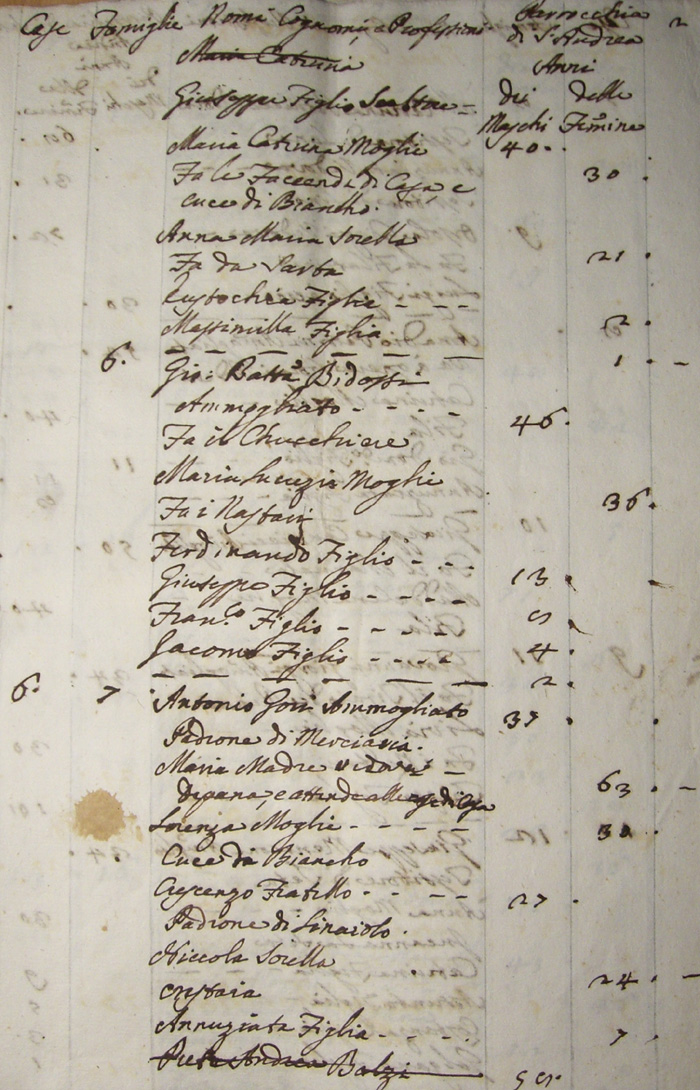 Case Famiglie Nomi Cognomi, e Professioni Parrocchia 2
di S. Andrea
Maria Catterina
Anni
Giuseppe Figlio Scultore - dei delle
Maschi Femine
Maria Caterina Moglie 40.
Fa le Faccende di Casa, e 30.
cuce di Biancho.
Anna Maria Sorella
Fa da Sarta 21.
Eustochia Figlia - - -
Massimilla Figlia. 2.
6. 1. -
Gio: Batta Bidossi
Ammogliato - - - - 46.
Fa il Chucchiere
Maria Lucrezia Moglie
Fa i Nastari 36.
Ferdinando Figlio - - - -
Giuseppe Figlio - - - - 13.
Fran.co Figlio - - - - 9
Jacomo Figlio - - - - 4.
6. 7 2.
Antonio Gori Ammogliato 37.
Padrone di Merciaria.
Maria Madre vidova -
Dipana, e attende alle 63. -
Lorenza Moglie - - - - 30.
Cuce da Biancho
Crescenzo Fratello - - - - 27.
Padrone di Linaiolo.
Niccola Sorella
24. -
Annuziata Figlia - - - - 7.
Andrea Balzi